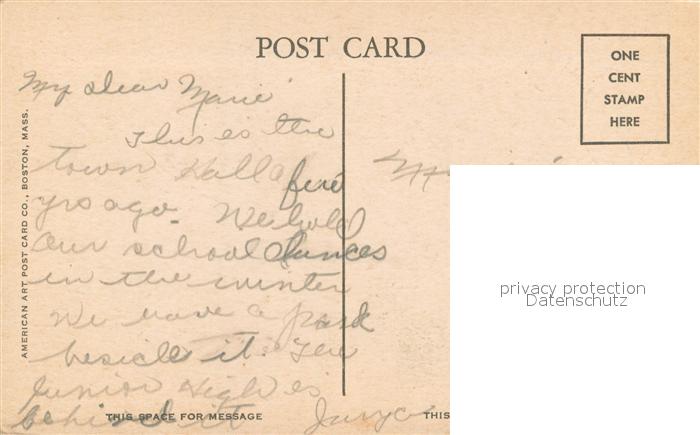 POST CARD
ONE
CENT
STAMP
HERE
AMERICAN ART POST CARD CO., BOSTON, MASS.
My dear Marie
This is the
town Hall a few
yrs ago. We hold
our school dances
in the winter
We have a park
beside it. The
Junior High is
behind it
THIS SPACE FOR MESSAGE
THIS
privacy protection
Datenschutz